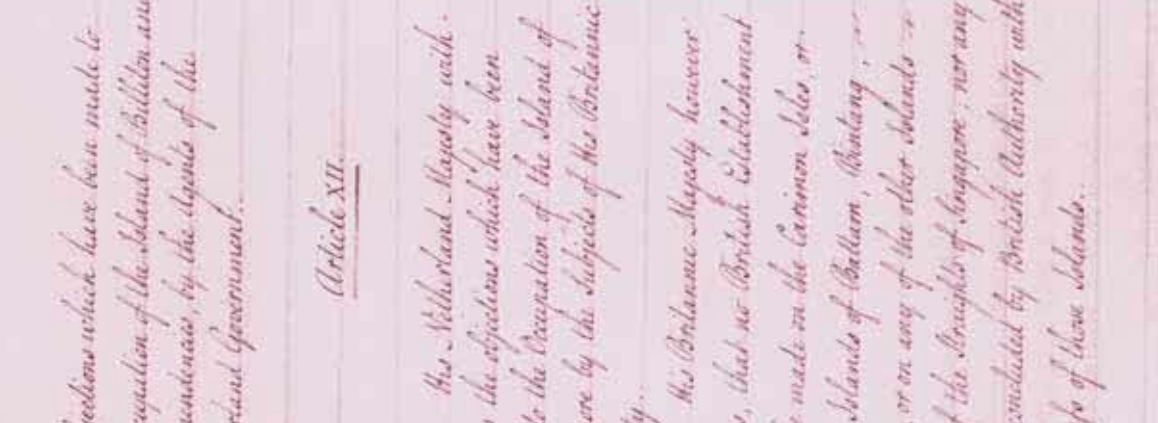 jections which have been made to
cupation of the Island of Billiton and
pendencies, by the Agents of the
rland Government.
Article XII.
His Netherland Majesty with-
s the objections which have been
to the Occupation of the Island of
ore by the Subjects of His Britannic
ty.
His Britannic Majesty however
s, that no British Establishment
e made on the Carimon Isles, or
Islands of Battam, Bintang,
or on any of the other Islands
f the Straights of Singapore; nor any
oncluded by British Authority with
fs of those Islands.